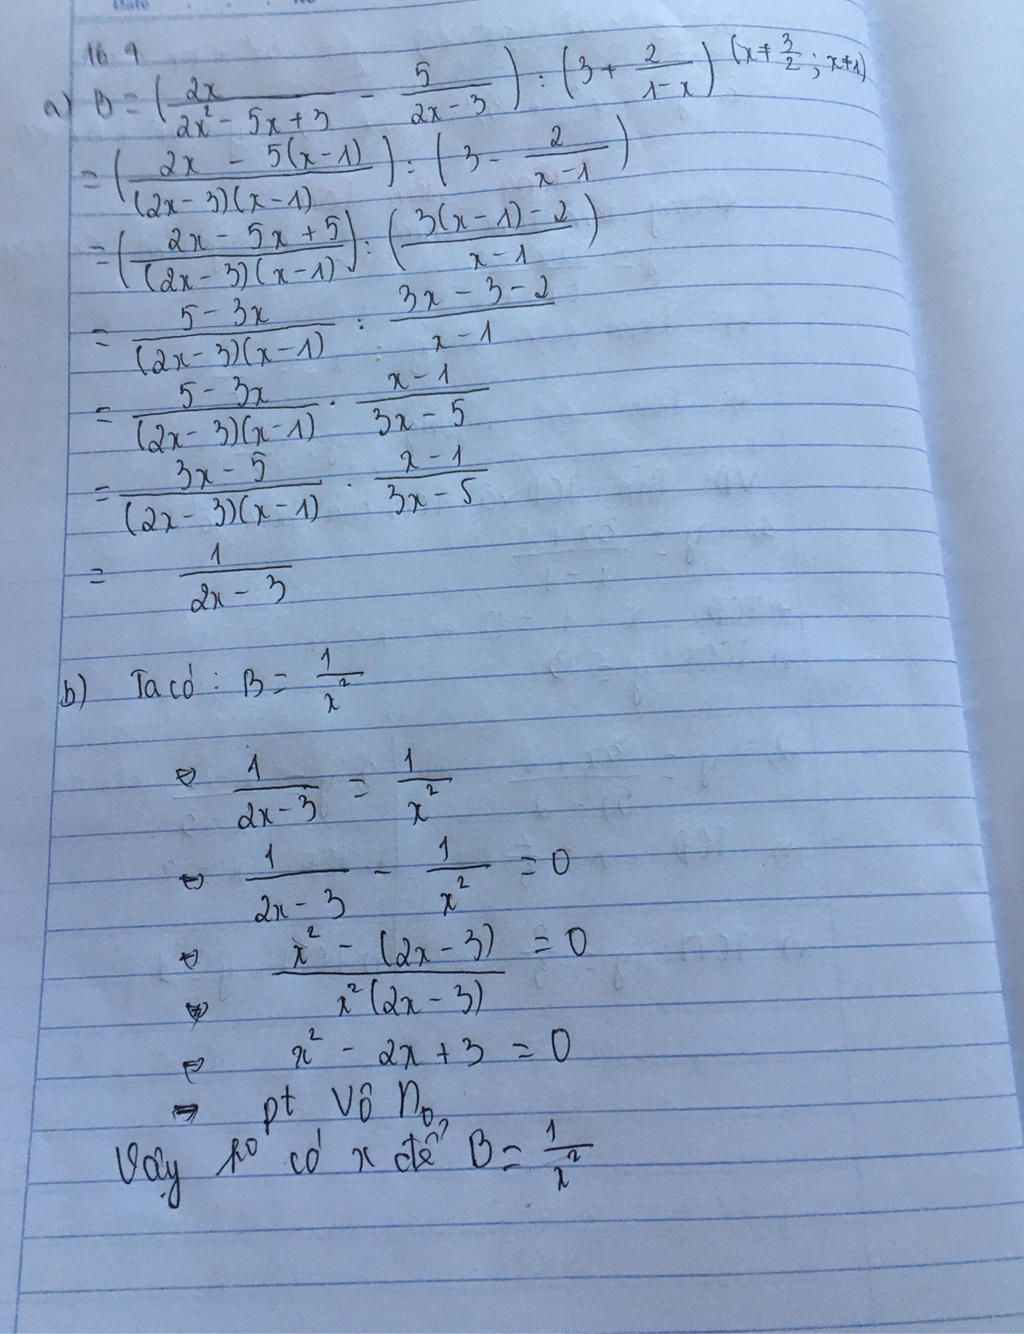 16.9
a) B = (2x/(2x² - 5x + 3) - 5/(2x - 3)) : (3 + 2/(1 - x)) (x ≠ 3/2 ; x ≠ 1)
= ((2x - 5(x - 1))/((2x - 3)(x - 1))) : (3 - 2/(x - 1))
= ((2x - 5x + 5)/((2x - 3)(x - 1))) : ((3(x - 1) - 2)/(x - 1))
= (5 - 3x)/((2x - 3)(x - 1)) : (3x - 3 - 2)/(x - 1)
= (5 - 3x)/((2x - 3)(x - 1)) . (x - 1)/(3x - 5)
= (3x - 5)/((2x - 3)(x - 1)) . (x - 1)/(3x - 5)
= 1/(2x - 3)
b) Ta có : B = 1/x²
⇔ 1/(2x - 3) = 1/x²
⇔ 1/(2x - 3) - 1/x² = 0
⇔ (x² - (2x - 3))/(x²(2x - 3)) = 0
⇔ x² - 2x + 3 = 0
⇒ pt vô n₀
Vậy ko có x để B = 1/x²